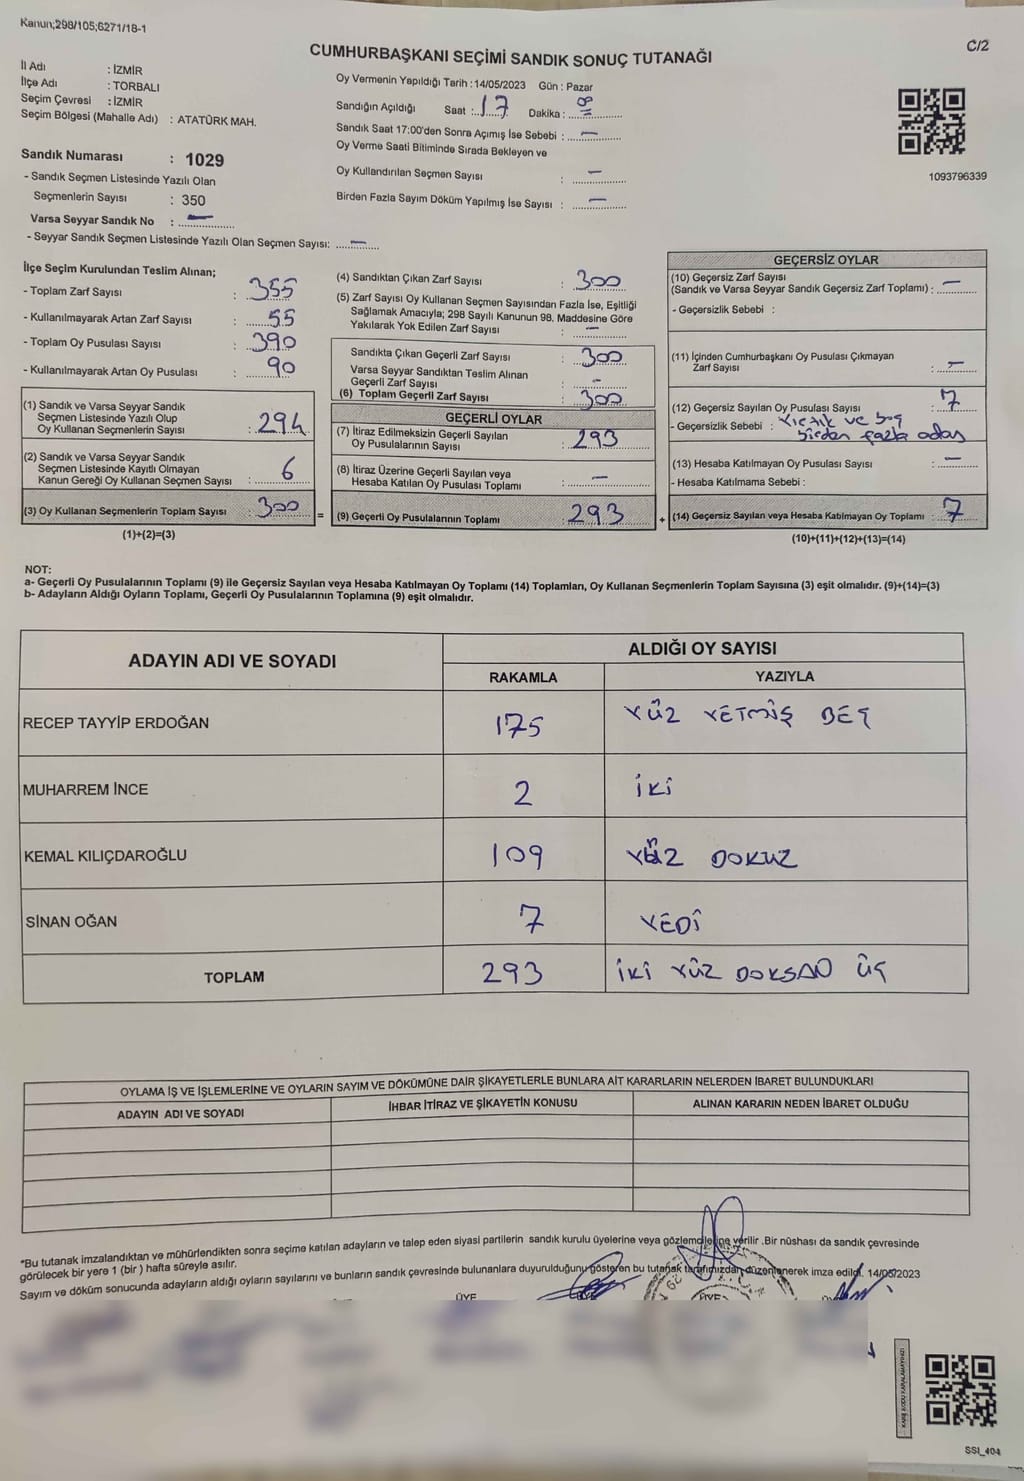 Kanun;298/105;6271/18-1
C/2
CUMHURBAŞKANI SEÇİMİ SANDIK SONUÇ TUTANAĞI
İl Adı : İZMİR
İlçe Adı : TORBALI
Seçim Çevresi : İZMİR
Seçim Bölgesi (Mahalle Adı) : ATATÜRK MAH.
Sandık Numarası : 1029
- Sandık Seçmen Listesinde Yazılı Olan
Seçmenlerin Sayısı : 350
Varsa Seyyar Sandık No : —
- Seyyar Sandık Seçmen Listesinde Yazılı Olan Seçmen Sayısı: —
Oy Vermenin Yapıldığı Tarih : 14/05/2023 Gün : Pazar
Sandığın Açıldığı Saat : 17 Dakika :
Sandık Saat 17:00'den Sonra Açımış İse Sebebi : —
Oy Verme Saati Bitiminde Sırada Bekleyen ve
Oy Kullandırılan Seçmen Sayısı : —
Birden Fazla Sayım Döküm Yapılmış İse Sayısı : —
1093796339
İlçe Seçim Kurulundan Teslim Alınan;
- Toplam Zarf Sayısı : 355
- Kullanılmayarak Artan Zarf Sayısı : 55
- Toplam Oy Pusulası Sayısı : 390
- Kullanılmayarak Artan Oy Pusulası : 90
(1) Sandık ve Varsa Seyyar Sandık
Seçmen Listesinde Yazılı Olup
Oy Kullanan Seçmenlerin Sayısı : 294
(2) Sandık ve Varsa Seyyar Sandık
Seçmen Listesinde Kayıtlı Olmayan
Kanun Gereği Oy Kullanan Seçmen Sayısı : 6
(3) Oy Kullanan Seçmenlerin Toplam Sayısı : 300
(1)+(2)=(3)
(4) Sandıktan Çıkan Zarf Sayısı : 300
(5) Zarf Sayısı Oy Kullanan Seçmen Sayısından Fazla İse, Eşitliği
Sağlamak Amacıyla; 298 Sayılı Kanunun 98. Maddesine Göre
Yakılarak Yok Edilen Zarf Sayısı : —
Sandıkta Çıkan Geçerli Zarf Sayısı : 300
Varsa Seyyar Sandıktan Teslim Alınan
Geçerli Zarf Sayısı : -
(6) Toplam Geçerli Zarf Sayısı : 300
GEÇERLİ OYLAR
(7) İtiraz Edilmeksizin Geçerli Sayılan
Oy Pusulalarının Sayısı : 293
(8) İtiraz Üzerine Geçerli Sayılan veya
Hesaba Katılan Oy Pusulası Toplamı : —
= (9) Geçerli Oy Pusulalarının Toplamı : 293
GEÇERSİZ OYLAR
(10) Geçersiz Zarf Sayısı
(Sandık ve Varsa Seyyar Sandık Geçersiz Zarf Toplamı) : —
- Geçersizlik Sebebi :
(11) İçinden Cumhurbaşkanı Oy Pusulası Çıkmayan
Zarf Sayısı : —
(12) Geçersiz Sayılan Oy Pusulası Sayısı : 7
- Geçersizlik Sebebi : Yırtık ve boş
birden fazla aday
(13) Hesaba Katılmayan Oy Pusulası Sayısı : —
- Hesaba Katılmama Sebebi :
+ (14) Geçersiz Sayılan veya Hesaba Katılmayan Oy Toplamı : 7
(10)+(11)+(12)+(13)=(14)
NOT:
a- Geçerli Oy Pusulalarının Toplamı (9) ile Geçersiz Sayılan veya Hesaba Katılmayan Oy Toplamı (14) Toplamları, Oy Kullanan Seçmenlerin Toplam Sayısına (3) eşit olmalıdır. (9)+(14)=(3)
b- Adayların Aldığı Oyların Toplamı, Geçerli Oy Pusulalarının Toplamına (9) eşit olmalıdır.
ADAYIN ADI VE SOYADI ALDIĞI OY SAYISI
RAKAMLA YAZIYLA
RECEP TAYYİP ERDOĞAN 175 YÜZ YETMİŞ BEŞ
MUHARREM İNCE 2 İKİ
KEMAL KILIÇDAROĞLU 109 YÜZ DOKUZ
SİNAN OĞAN 7 YEDİ
TOPLAM 293 İKİ YÜZ DOKSAN ÜÇ
OYLAMA İŞ VE İŞLEMLERİNE VE OYLARIN SAYIM VE DÖKÜMÜNE DAİR ŞİKAYETLERLE BUNLARA AİT KARARLARIN NELERDEN İBARET BULUNDUKLARI
ADAYIN ADI VE SOYADI İHBAR İTİRAZ VE ŞİKAYETİN KONUSU ALINAN KARARIN NEDEN İBARET OLDUĞU
*Bu tutanak imzalandıktan ve mühürlendikten sonra seçime katılan adayların ve talep eden siyasi partilerin sandık kurulu üyelerine veya gözlemcilerine verilir .Bir nüshası da sandık çevresinde
görülecek bir yere 1 (bir ) hafta süreyle asılır.
Sayım ve döküm sonucunda adayların aldığı oyların sayılarını ve bunların sandık çevresinde bulunanlara duyurulduğunu gösteren bu tutanak tarafımızdan düzenlenerek imza edildi. 14/05/2023
ÜYE ÜYE
SSI_404